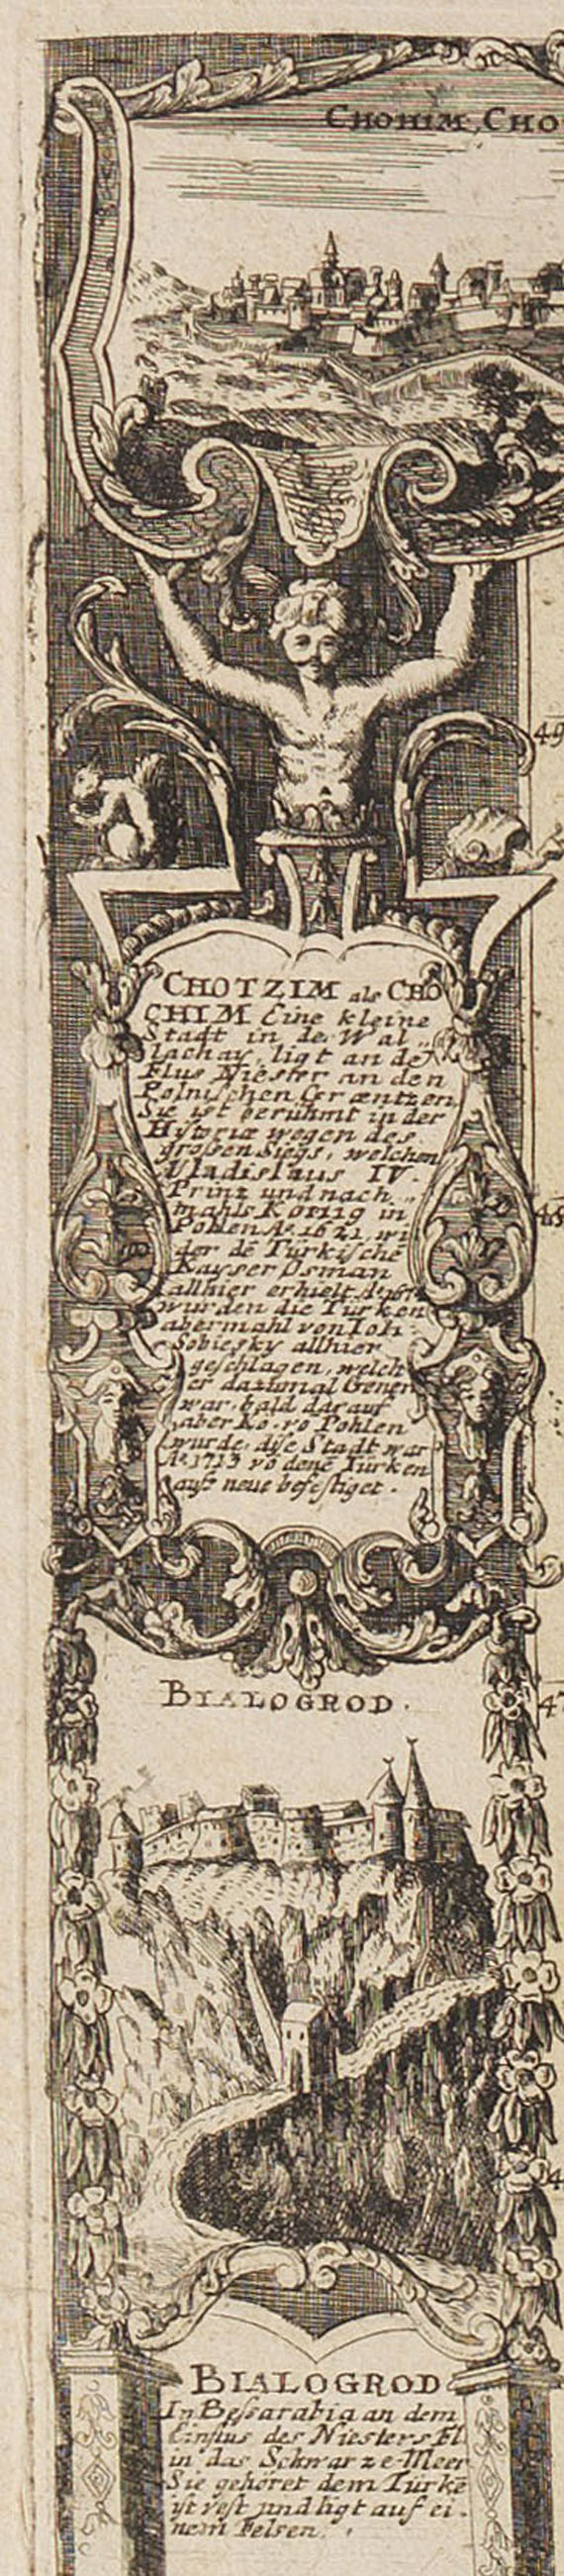 CHOHIM, CHO
49
CHOTZIM als CHO
CHIM Eine kleine
Stadt in der Wal„
lachay, ligt an dem
Flus Niester an den
Polnischen Græntzen,
Sie ist berühmt in der
Historiæ wegen des
grossen Siegs, welchen
Uladislaus IV.
Prinz und nach„
mahls König in
Pohlen Aº. 1621. wi
der dē Türkischē
Kayser Osman
allhier erhielt. Aº.
wurden die Türken
abermahl von Ioh:
Sobiesky allhier
geschlagen, welch
er dazumal Gener
war, bald darauf
aber Kö. vō Pohlen
wurde. dise Stadt war
Aº. 1713 vō denē Türken
aufs neue befestiget.
BIALOGROD.
47
BIALOGROD
In Bessarabia an dem
Einflus des Niesters Fl.
in das Schwarze-Meer
Sie gehöret dem Türkē
ist vest und ligt auf ei-
nem Felsen.